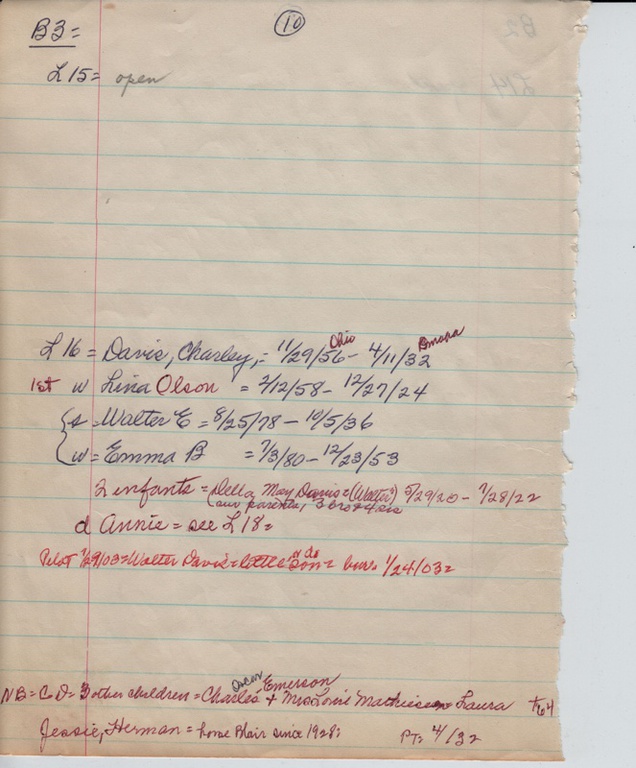 B3=
10
L15= open
L16 = Davis, Charley, = 11/29/56 Ohio - 4/11/32 Omaha
1st w Lina Olson = 2/12/58 - 12/27/24
s = Walter E = 8/25/78 - 10/5/36
w = Emma B = 7/3/80 - 12/23/53
2 infants = Della May Davis = (Walter) 5/29/20 - 7/28/22
sur parents, 3 bro 4 sis
d Annie = see L18=
Pilot 1/29/03 = Walter Davis = little son = bur. 1/24/03 =
Oscar Emerson
NB = CD = other children = Charles + Mrs Louie Mathiesen Laura
Jessie, Herman = home Blair since 1928; PT= 4/32